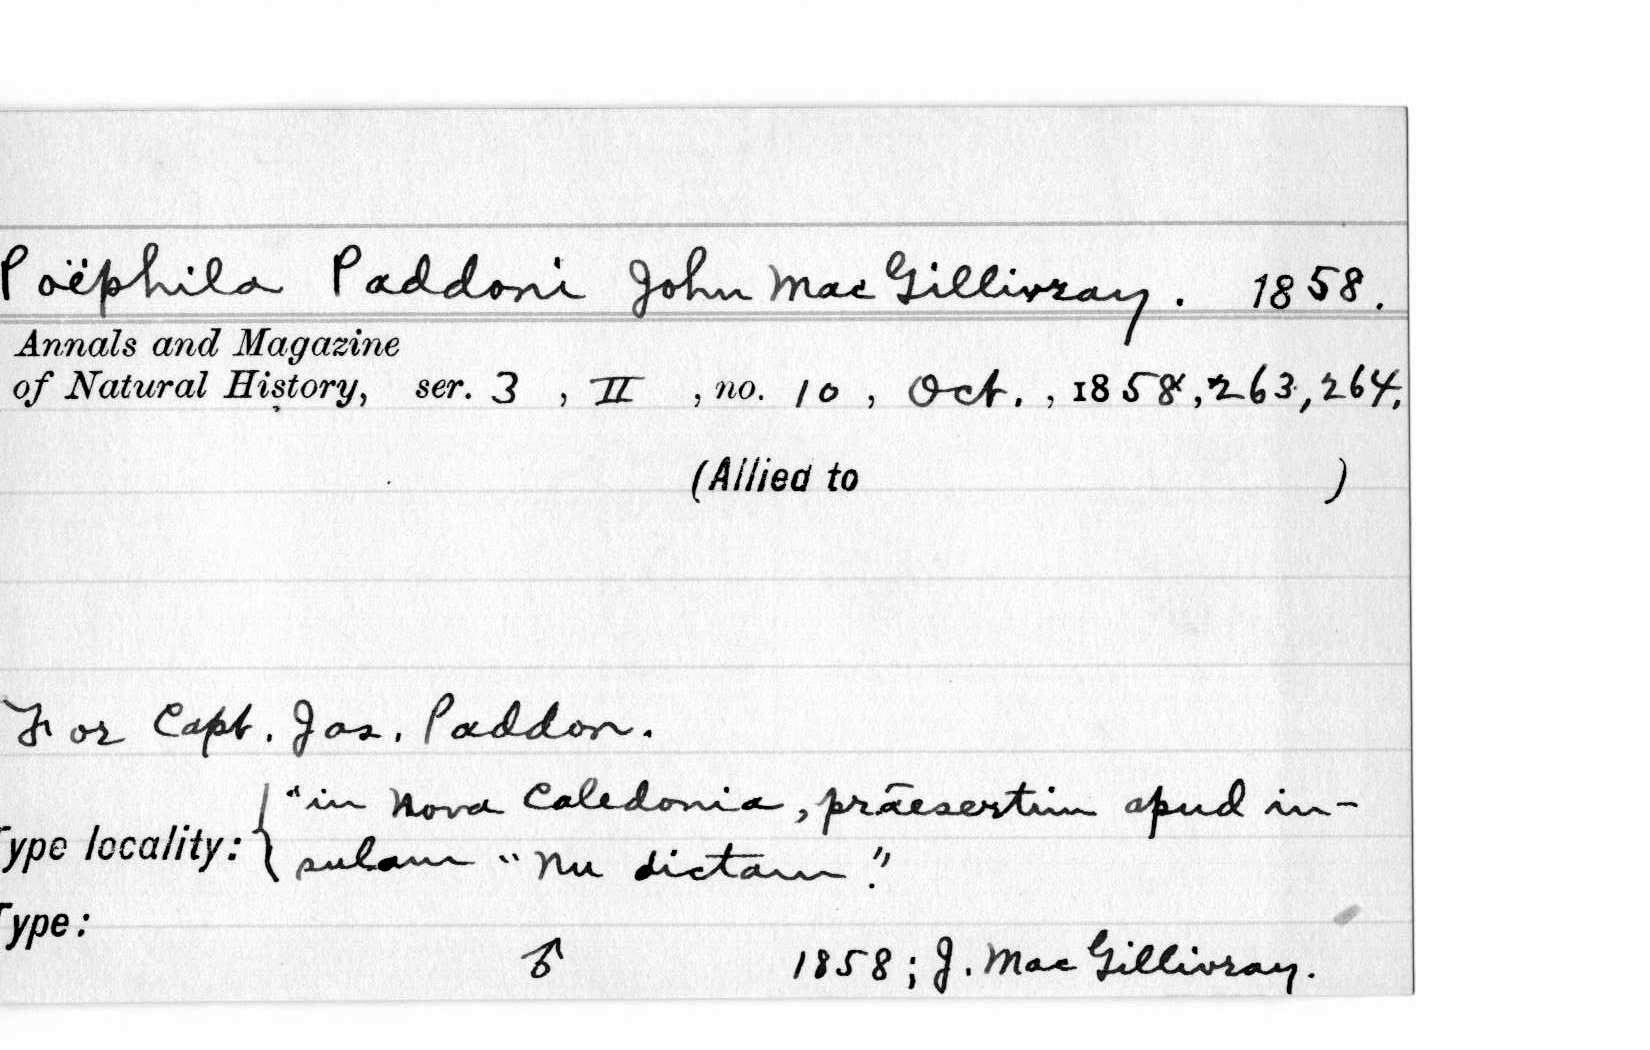 Poëphila Paddoni John MacGillivray. 1858.
Annals and Magazine
of Natural History, ser. 3 , II , no. 10 , Oct. , 1858, 263, 264.
(Allied to )
For Capt. Jas. Paddon.
"in Nova Caledonia, præsertim apud in-
Type locality: { sulam "Nu dictam."
Type:
♂ 1858; J. MacGillivray.